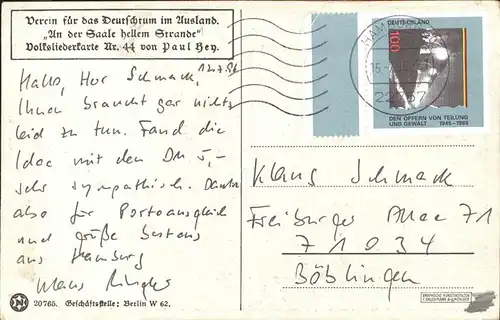 Verein für das Deutschtum im Ausland.
„An der Saale hellem Strande“
Volksliederkarte Nr. 44 von Paul Hey.
Hallo, Herr Schmack,
Ihnen braucht gar nichts
leid zu tun. Fand die
Idee mit den DM 5,-
sehr sympathisch. Danke
also für Portoausgleich
und grüße bestens
aus Hamburg
Klaus
DEUTSCHLAND
100
DEN OPFERN VON TEILUNG
UND GEWALT 1945-1989
HAMBURG
Klaus Schmack
Freiburger Allee 71
71034
Böblingen
20765. Geschäftsstelle: Berlin W 62.